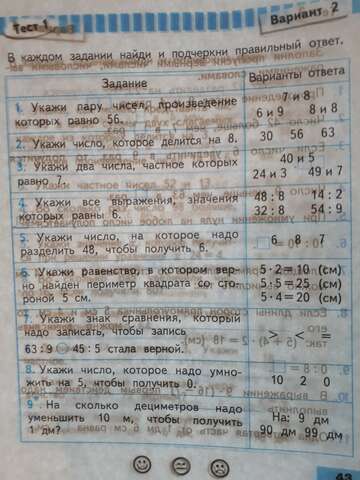 Тест 1
Вариант 2
В каждом задании найди и подчеркни правильный ответ.
Задание
Варианты ответа
1. Укажи пару чисел, произведение
которых равно 56.
7 и 8
6 и 9 8 и 8
2. Укажи число, которое делится на 8.
30 56 63
3. Укажи два числа, частное которых
равно
40 и 5
24 и 3 49 и 7
4. Укажи все выражения, значения
которых равны 6.
48 : 8 14 : 2
32 : 8 54 : 9
5. Укажи число, на которое надо
разделить 48, чтобы получить 6.
6 8 7
6. Укажи равенство, в котором вер-
но найден периметр квадрата со сто-
роной 5 см.
5 · 2 = 10 (см)
5 · 5 = 25 (см)
5 · 4 = 20 (см)
7. Укажи знак сравнения, который
надо записать, чтобы запись
63 : 9 45 : 5 стала верной.
> < =
8. Укажи число, которое надо умно-
жить на 5, чтобы получить 0.
10 2 0
9 На сколько дециметров надо
уменьшить 10 м, чтобы получить
1 дм?
На: 9 дм
90 дм 99 дм
43